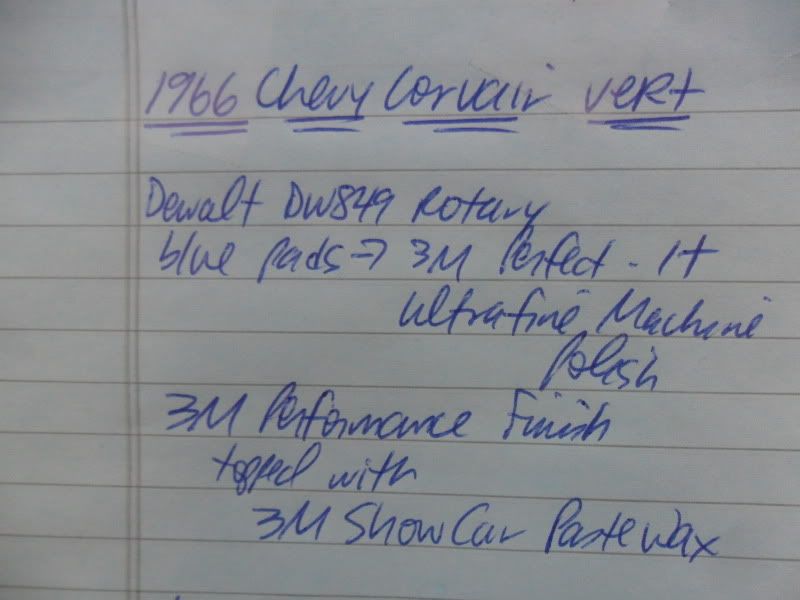 1966 Chevy Corvair vert
Dewalt DW849 Rotary
blue pads → 3M Perfect-It
Ultrafine Machine
Polish
3M Performance Finish
topped with
3M Show Car Paste Wax